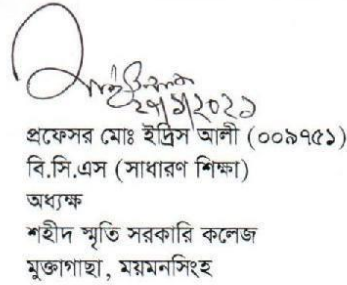 ২৭/১/২০২১
প্রফেসর মোঃ ইদ্রিস আলী (০০৯৭৫১)
বি.সি.এস (সাধারণ শিক্ষা)
অধ্যক্ষ
শহীদ স্মৃতি সরকারি কলেজ
মুক্তাগাছা, ময়মনসিংহ